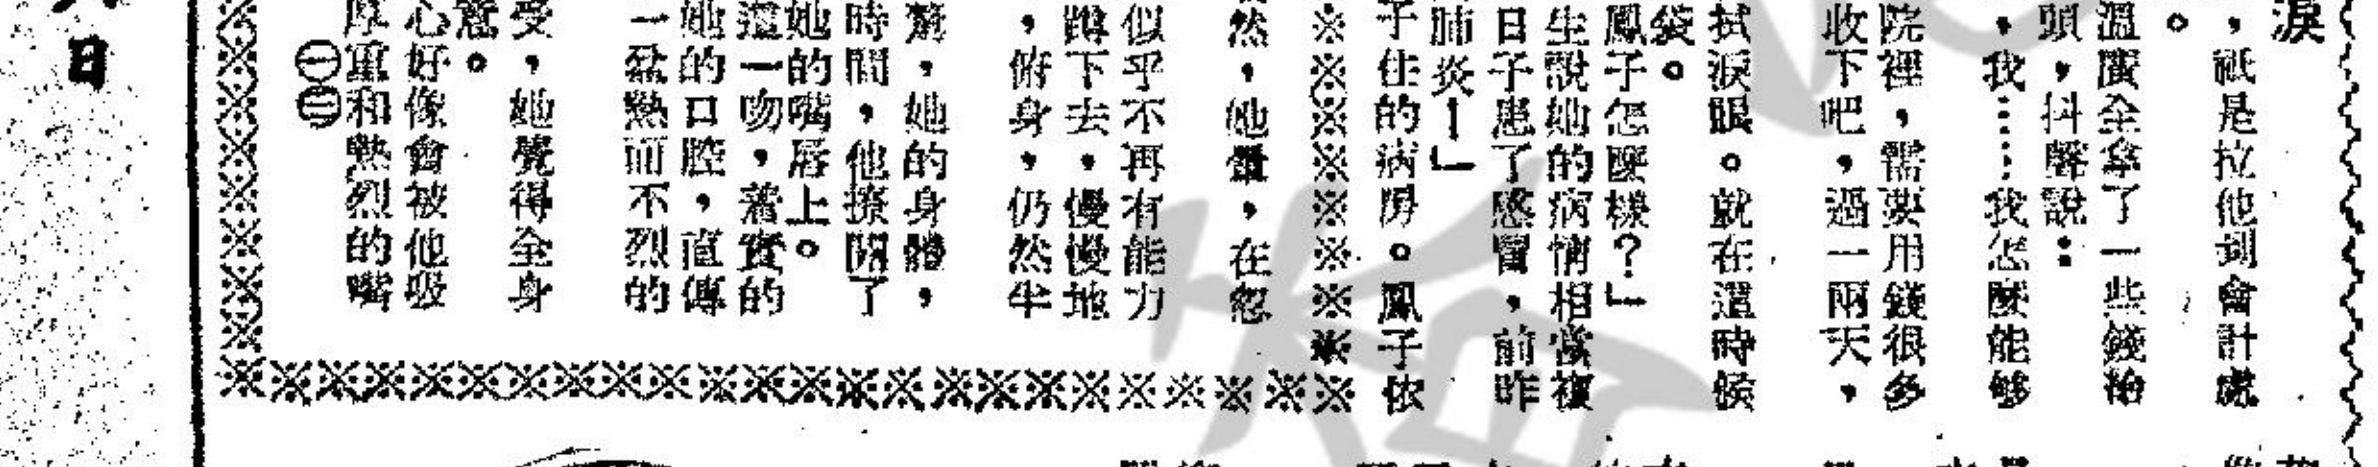 淚
，祇是拉他到會計處
。
溫廣全拿了一些錢給
頭，抖聲說：
，我……我怎麼能够
院裡，需要用錢很多
收下吧，過一兩天，
拭淚眼。就在這時候
袋。
鳳子怎麼樣？」
生說她的病情相當複
日子患了感冒，前昨
肺炎！」
子住的病房。鳳子依
然，他儘，在忽
似乎不再有能力
蹲下去，慢慢地
，俯身，仍然半
，她的身體，
時間，他撩開了
她的嘴唇上。
這一吻，着實的
她的口腔，直傳
一盆熱而不烈的
受，她覺得全身
意。
心好像會被他吸
厚重和熱烈的嘴
㊀㊁
日